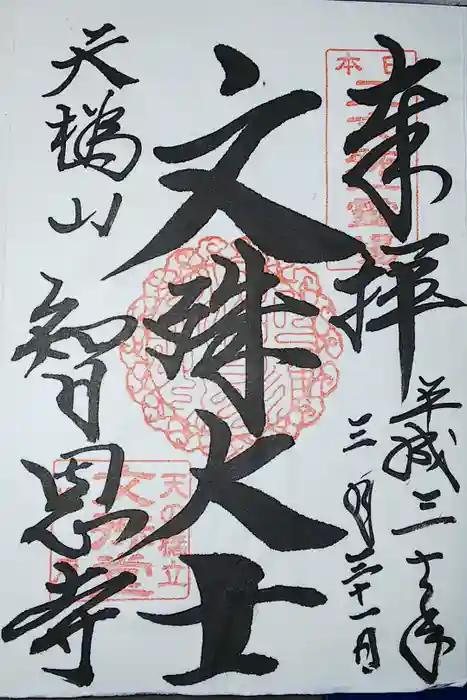 奉拝
平成三十年
三月二十一日
文殊大士
天橋山
智恩寺
日本
天の橋立
文殊堂